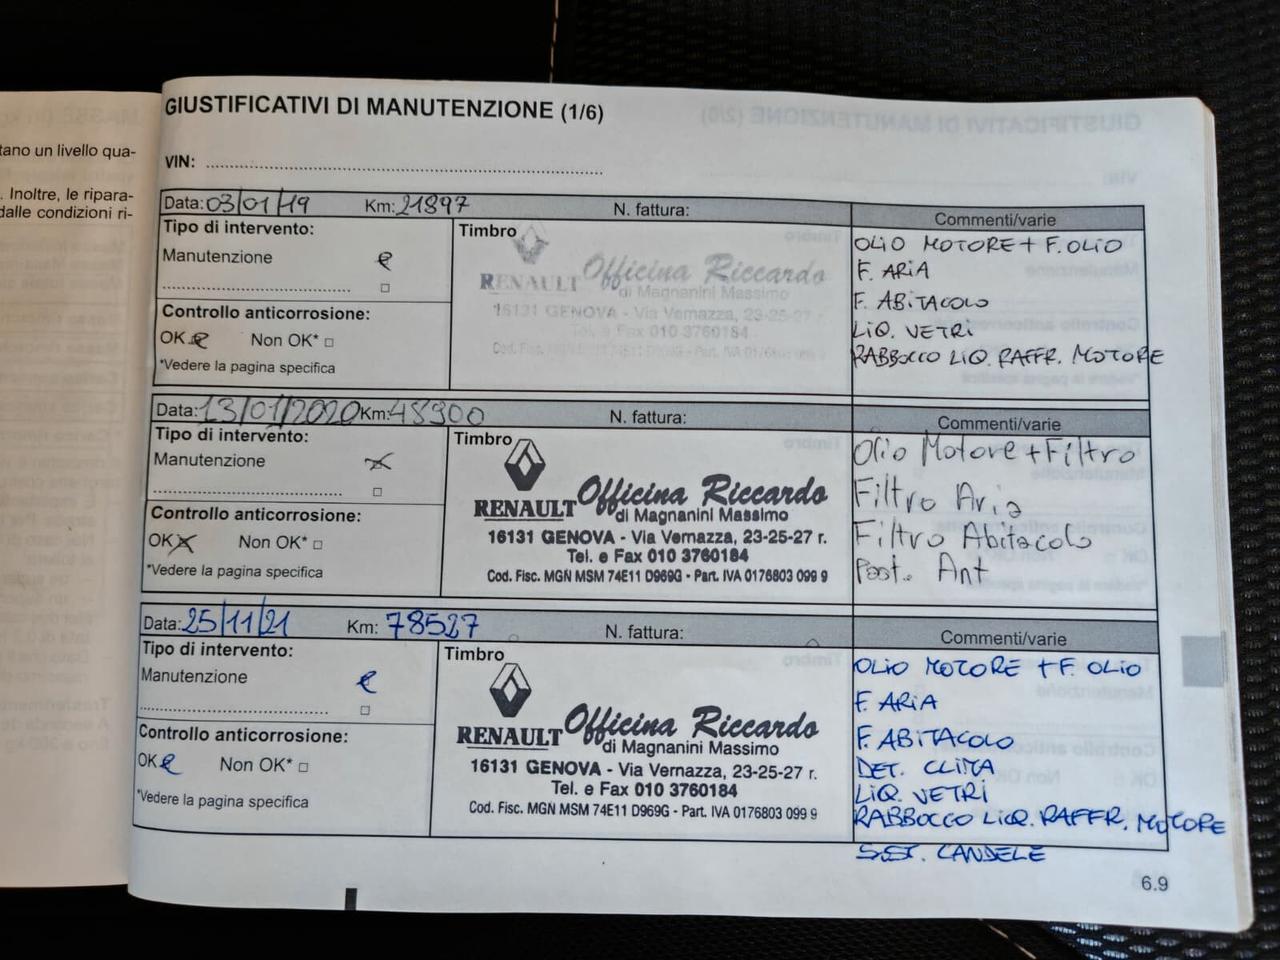 tano un livello qua-
. Inoltre, le ripara-
dalle condizioni ri-
GIUSTIFICATIVI DI MANUTENZIONE (1/6)
VIN:
Data: 03/01/19 Km: 21897 N. fattura: Commenti/varie
Tipo di intervento:
Manutenzione
Controllo anticorrosione:
OK Non OK*
*Vedere la pagina specifica
Timbro
RENAULT Officina Riccardo
di Magnanini Massimo
16131 GENOVA - Via Vernazza, 23-25-27 r.
Tel. e Fax 010 3760184
OLIO MOTORE + F. OLIO
F. ARIA
F. ABITACOLO
LIQ. VETRI
RABBOCCO LIQ. RAFFR. MOTORE
Data: 13/01/2020 Km: 48300 N. fattura: Commenti/varie
Tipo di intervento:
Manutenzione
Controllo anticorrosione:
OK Non OK*
*Vedere la pagina specifica
Timbro
RENAULT Officina Riccardo
di Magnanini Massimo
16131 GENOVA - Via Vernazza, 23-25-27 r.
Tel. e Fax 010 3760184
Cod. Fisc. MGN MSM 74E11 D969G - Part. IVA 0176803 099 9
Olio Motore + Filtro
Filtro Aria
Filtro Abitacolo
Past. Ant
Data: 25/11/21 Km: 78527 N. fattura: Commenti/varie
Tipo di intervento:
Manutenzione
Controllo anticorrosione:
OK Non OK*
*Vedere la pagina specifica
Timbro
RENAULT Officina Riccardo
di Magnanini Massimo
16131 GENOVA - Via Vernazza, 23-25-27 r.
Tel. e Fax 010 3760184
Cod. Fisc. MGN MSM 74E11 D969G - Part. IVA 0176803 099 9
OLIO MOTORE + F. OLIO
F. ARIA
F. ABITACOLO
DET. CLIMA
LIQ. VETRI
RABBOCCO LIQ. RAFFR. MOTORE
SOST. CANDELE
6.9